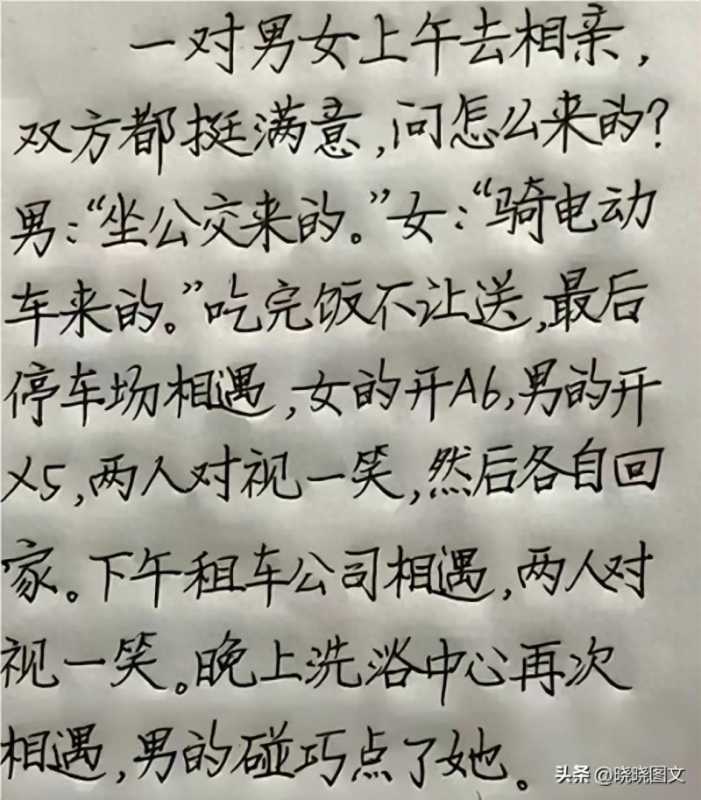 一对男女上午去相亲，
双方都挺满意，问怎么来的？
男：“坐公交来的。”女：“骑电动
车来的。”吃完饭不让送，最后
停车场相遇，女的开A6，男的开
X5，两人对视一笑，然后各自回
家。下午租车公司相遇，两人对
视一笑。晚上洗浴中心再次
相遇，男的碰巧点了她。
头条 @晓晓图文